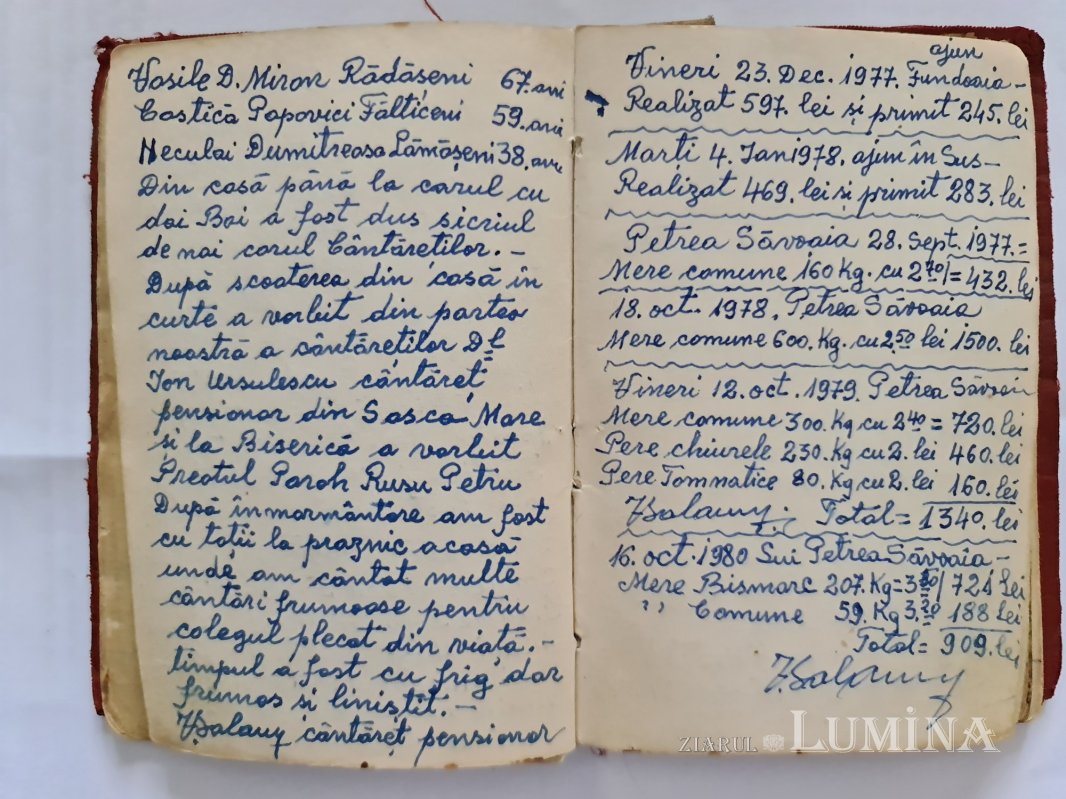 Vasile D. Miron Rădășeni 67. ani
Costică Popovici Fălticeni 59. ani
Neculai Dumitreasa Lămășeni 38. ani
Din casă până la carul cu
doi Boi a fost dus sicriul
de noi corul Cântăreților. –
După scoaterea din casă în
curte a vorbit din partea
noastră a cântăreților Dl
Ion Ursulescu cântăreț
pensionar din Sasca Mare
și la Biserică a vorbit
Preotul Paroh Rusu Petru
După înmormântare am fost
cu toții la praznic acasă
unde am cântat multe
cântări frumoase pentru
colegul plecat din viață. –
timpul a fost cu frig dar
frumos și liniștit. –
cântăreț pensionar
ajun
Vineri 23. Dec. 1977. Fundoaia –
Realizat 597. lei și primit 245. lei
Marti 4. Ian 1978. ajun în Sus –
Realizat 469. lei și primit 283. lei
Petrea Săvoaia 28. Sept. 1977. =
Mere comune 160 Kg. cu 2 70/ = 432. lei
18. oct. 1978. Petrea Săvoaia
Mere comune 600. Kg. cu 2.50 lei 1500. lei
Vineri 12. oct. 1979. Petrea Săvoaia
Mere comune 300. Kg cu 2 40 = 720. lei
Pere chiurele 230. Kg cu 2. lei 460. lei
Pere Tomnatice 80. Kg cu 2. lei 160. lei
Total = 1340. lei
16. oct. 1980 Lui Petrea Săvoaia –
Mere Bismarc 207. Kg = 3 50/ 721 lei
" Comune 59. Kg 3.20 188 lei
Total = 909. lei
ZIARUL LUMINA